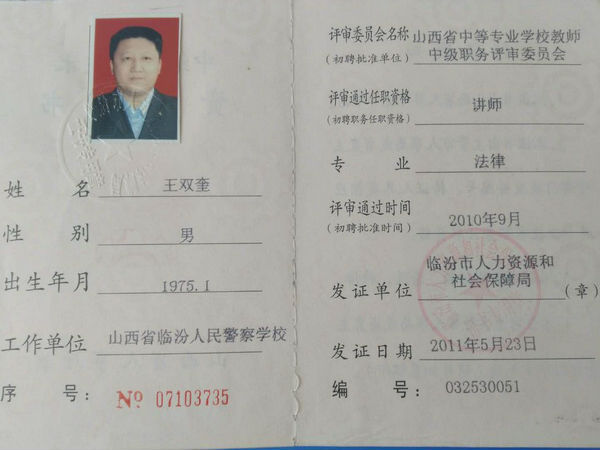 姓 名 王双奎
性 别 男
出生年月 1975.1
工作单位 山西省临汾人民警察学校
序 号： № 07103735
评审委员会名称 山西省中等专业学校教师
(初聘批准单位) 中级职务评审委员会
评审通过任职资格 讲师
(初聘职务任职资格)
专 业 法律
评审通过时间 2010年9月
(初聘批准时间)
临汾市人力资源和
发证单位 社会保障局 (章)
发证日期 2011年5月23日
编 号： 032530051